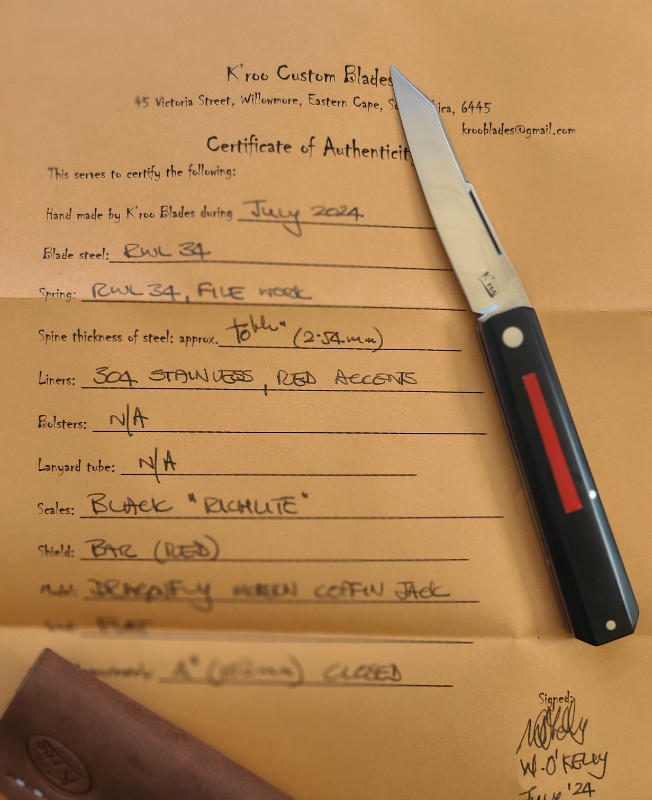 K'roo Custom Blades
45 Victoria Street, Willowmore, Eastern Cape, So ica, 6445
krooblades@gmail.com
Certificate of Authenticit
This serves to certify the following:
Hand made by K'roo Blades during July 2024
Blade steel: RWL 34
Spring: RWL 34, FILE WORK
Spine thickness of steel: approx. (2.54mm)
Liners: 304 STAINLESS, RED ACCENTS
Bolsters: N/A
Lanyard tube: N/A
Scales: BLACK "RICHLITE"
Shield: BAR (RED)
Model: DRAGONFLY MODERN COFFIN JACK
FLAT
4" CLOSED
Signed:
W. O'KELLY
'24
K'roo
K'roo